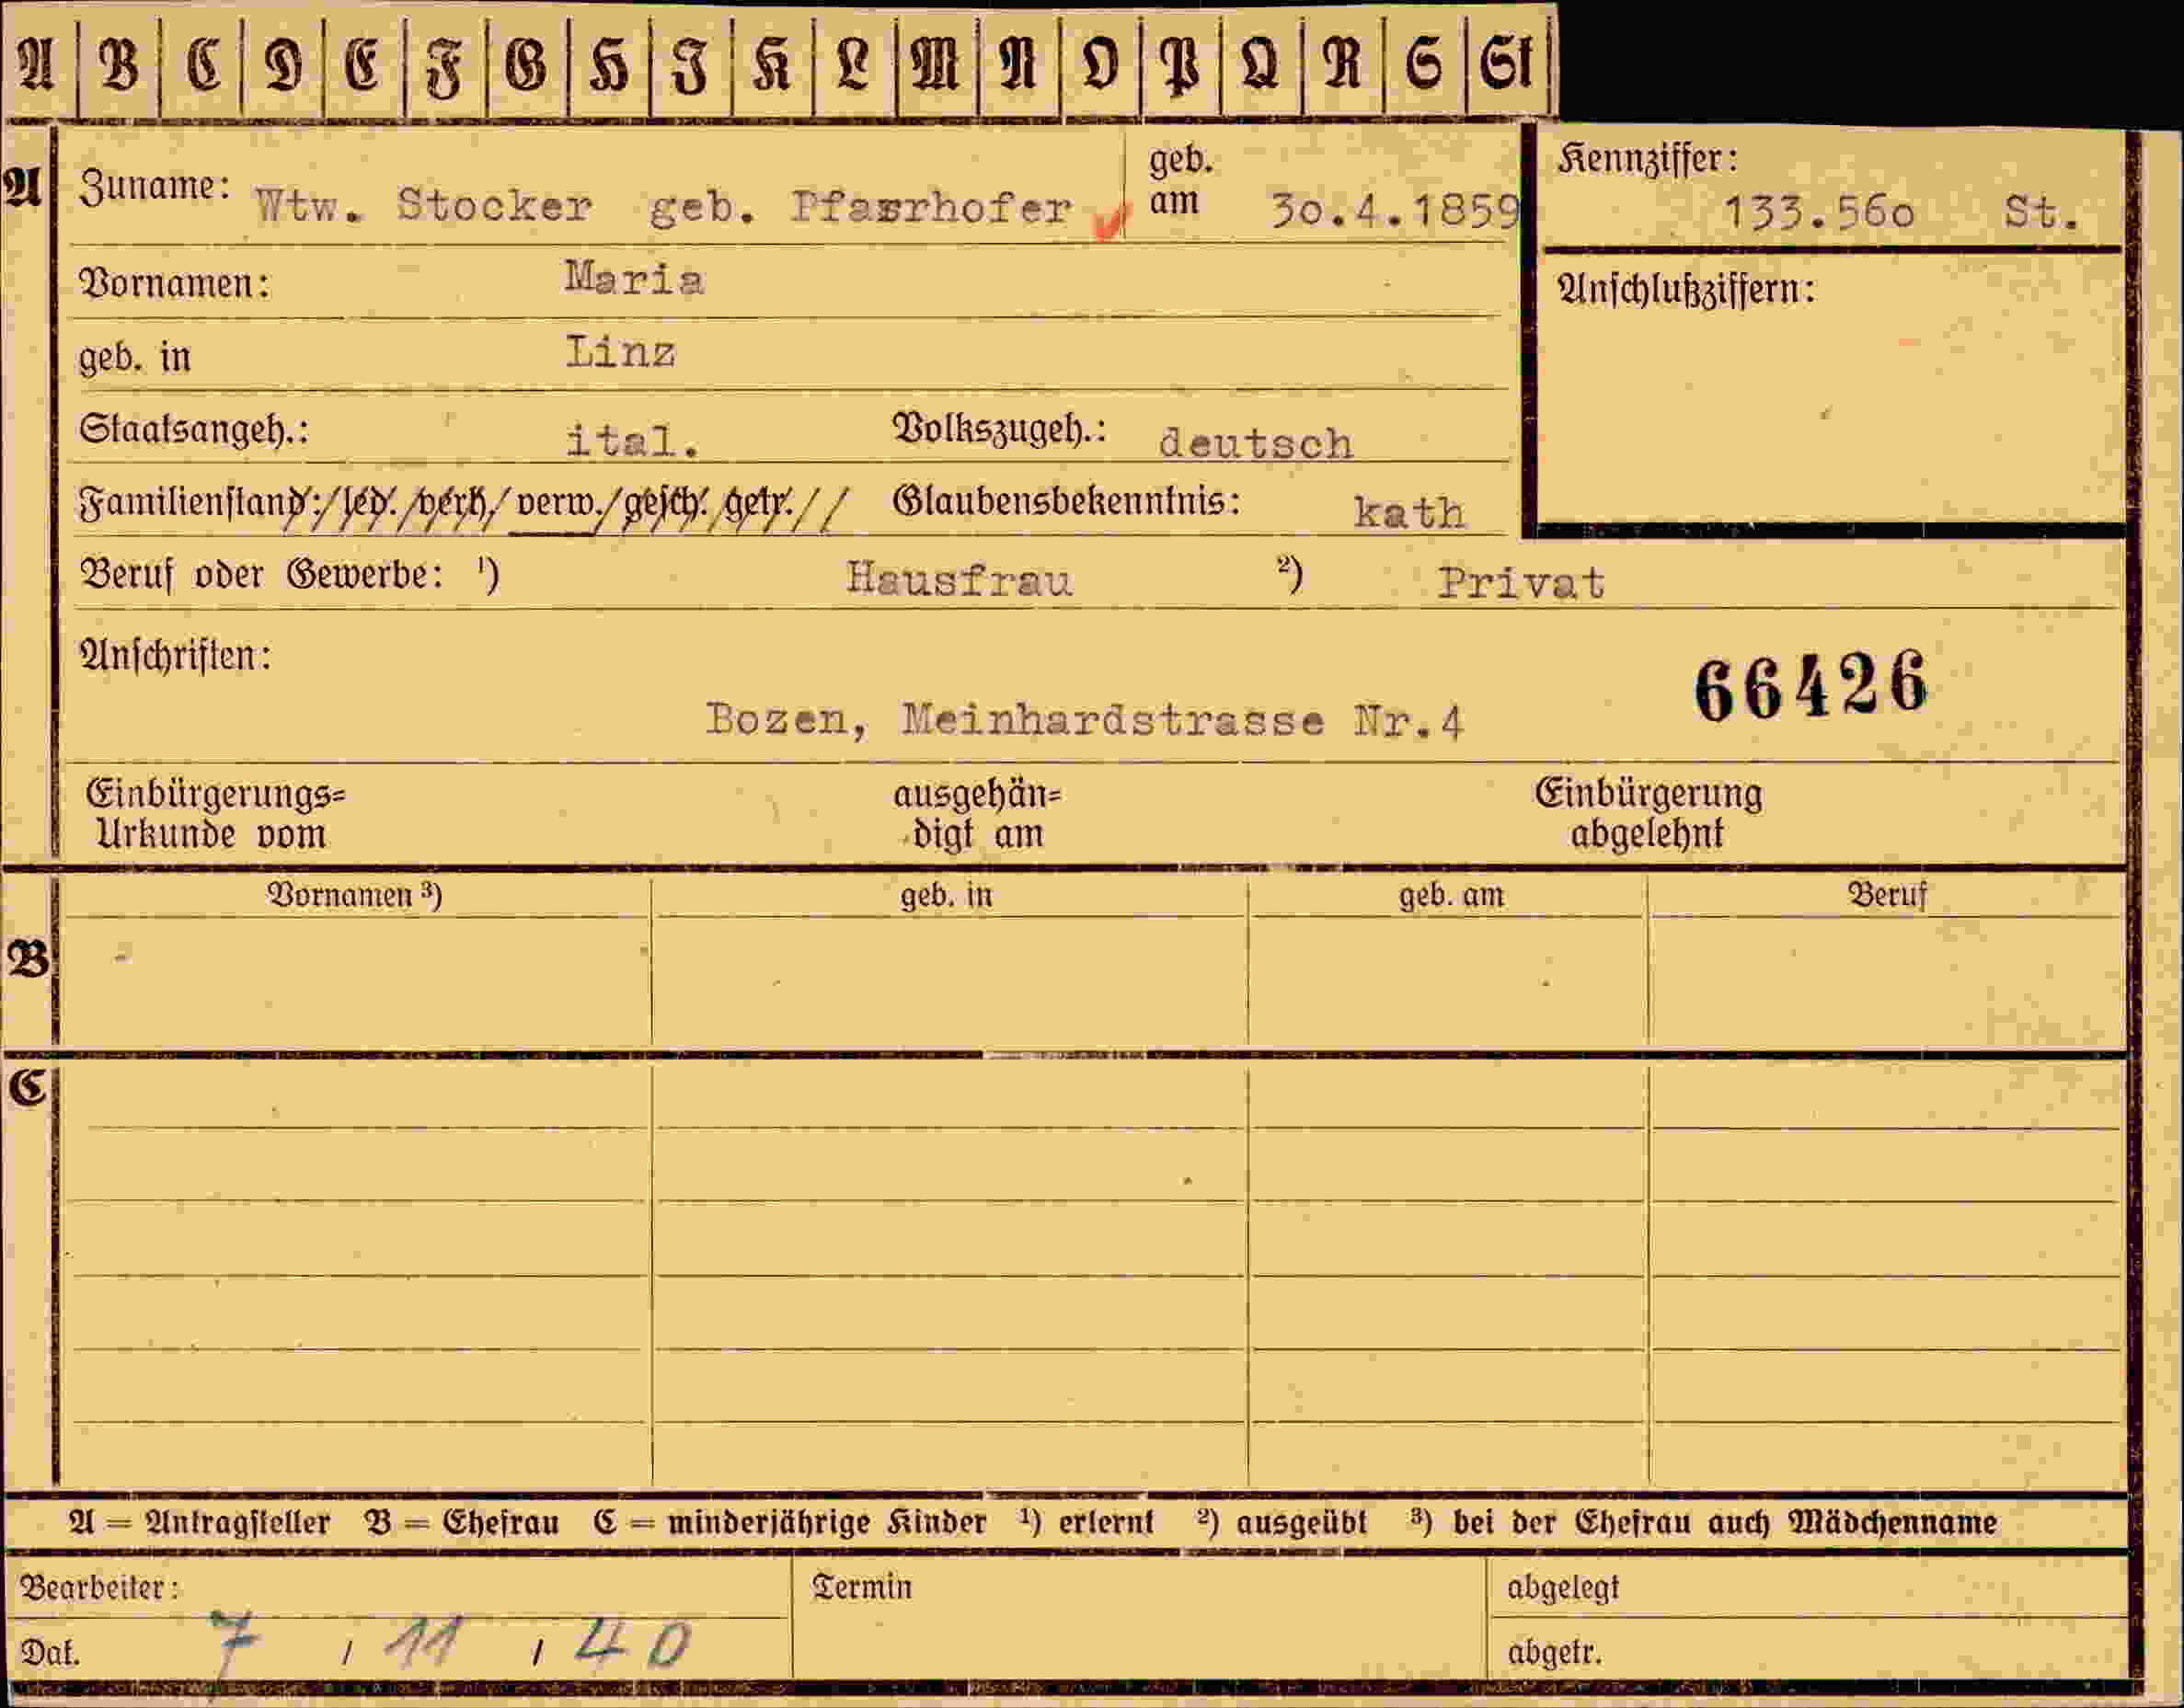 A B C D E F G H I K L M N O P Q R S St
A Zuname: Wtw. Stocker geb. Pfarrhofer geb. am 30.4.1859 Kennziffer: 133.56o St.
Vornamen: Maria Anschlußziffern:
geb. in Linz
Staatsangeh.: ital. Volkszugeh.: deutsch
Familienstand: led. verh. verw. gesch. getr. Glaubensbekenntnis: kath
Beruf oder Gewerbe: ¹) Hausfrau ²) Privat
Anschriften: 66426
Bozen, Meinhardstrasse Nr.4
Einbürgerungs= ausgehän= Einbürgerung
Urkunde vom digt am abgelehnt
Vornamen ³) geb. in geb. am Beruf
B
C
A = Antragsteller B = Ehefrau C = minderjährige Kinder ¹) erlernt ²) ausgeübt ³) bei der Ehefrau auch Mädchenname
Bearbeiter: Termin abgelegt
Dat. 7 / 11 / 40 abgetr.